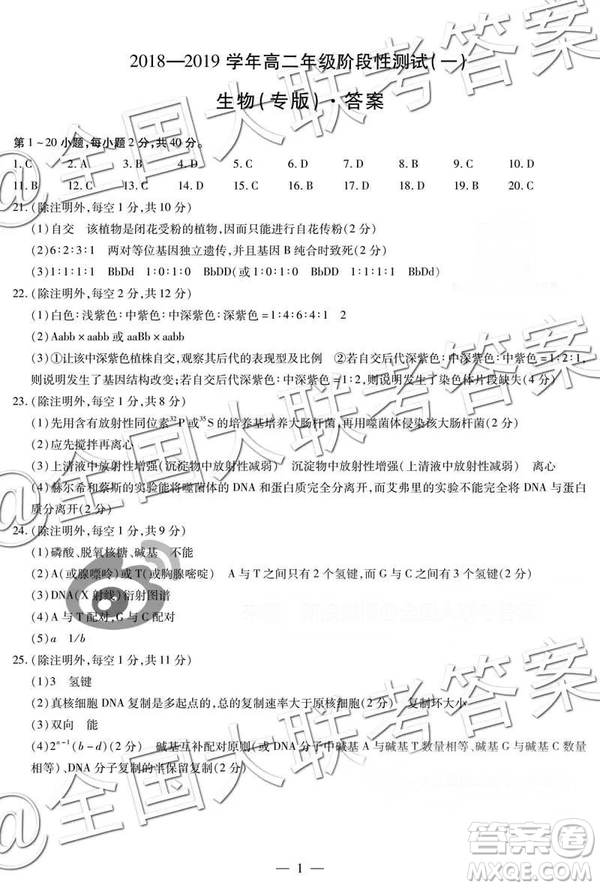 2018—2019 学年高二年级阶段性测试(一)
生物(专版)·答案
第1~20小题,每小题2分,共40分。
1. C 2. A 3. B 4. D 5. A 6. B 7. C 8. C 9. A 10. D
11. B 12. C 13. D 14. C 15. D 16. D 17. A 18. B 19. B 20. C
21. (除注明外,每空1分,共10分)
(1)自交 该植物是闭花受粉的植物,因而只能进行自花传粉(2分)
(2)6∶2∶3∶1 两对等位基因独立遗传,并且基因 B 纯合时致死(2分)
(3)1∶1∶1∶1 BbDd 1∶0∶1∶0 BbDD(或1∶0∶1∶0 BbDD 1∶1∶1∶1 BbDd)
22. (除注明外,每空2分,共12分)
(1)白色∶浅紫色∶中紫色∶中深紫色∶深紫色=1∶4∶6∶4∶1 2
(2)Aabb×aabb 或 aaBb×aabb
(3)①让该中深紫色植株自交,观察其后代的表现型及比例 ②若自交后代深紫色∶中深紫色∶中紫色=1∶2∶1,
则说明发生了基因结构改变;若自交后代中深紫色∶中紫色=1∶2,则说明发生了染色体片段缺失(4分)
23. (除注明外,每空1分,共8分)
(1)先用含有放射性同位素³²P 或³⁵S 的培养基培养大肠杆菌,再用噬菌体侵染该大肠杆菌(2分)
(2)应先搅拌再离心
(3)上清液中放射性增强(沉淀物中放射性减弱) 沉淀物中放射性增强(上清液中放射性减弱) 离心
(4)赫尔希和蔡斯的实验能将噬菌体的 DNA 和蛋白质完全分离开,而艾弗里的实验不能完全将 DNA 和蛋白
质分离开(2分)
24. (除注明外,每空1分,共9分)
(1)磷酸、脱氧核糖、碱基 不能
(2)A(或腺嘌呤)或 T(或胸腺嘧啶) A 与 T 之间只有2个氢键,而 G 与 C 之间有3个氢键(2分)
(3)DNA(X 射线)衍射图谱
(4)A 与 T 配对,G 与 C 配对
(5)a 1/b
25. (除注明外,每空1分,共11分)
(1)3 氢键
(2)真核细胞 DNA 复制是多起点的,总的复制速率大于原核细胞(2分) 复制环大小
(3)双向 能
(4)2ⁿ⁻¹(b-d)(2分) 碱基互补配对原则(或 DNA 分子中碱基 A 与碱基 T 数量相等、碱基 G 与碱基 C 数量相
等)、DNA 分子复制的半保留复制(2分)
— 1 —
@全国大联考答案
答案圈
MXQE.COM